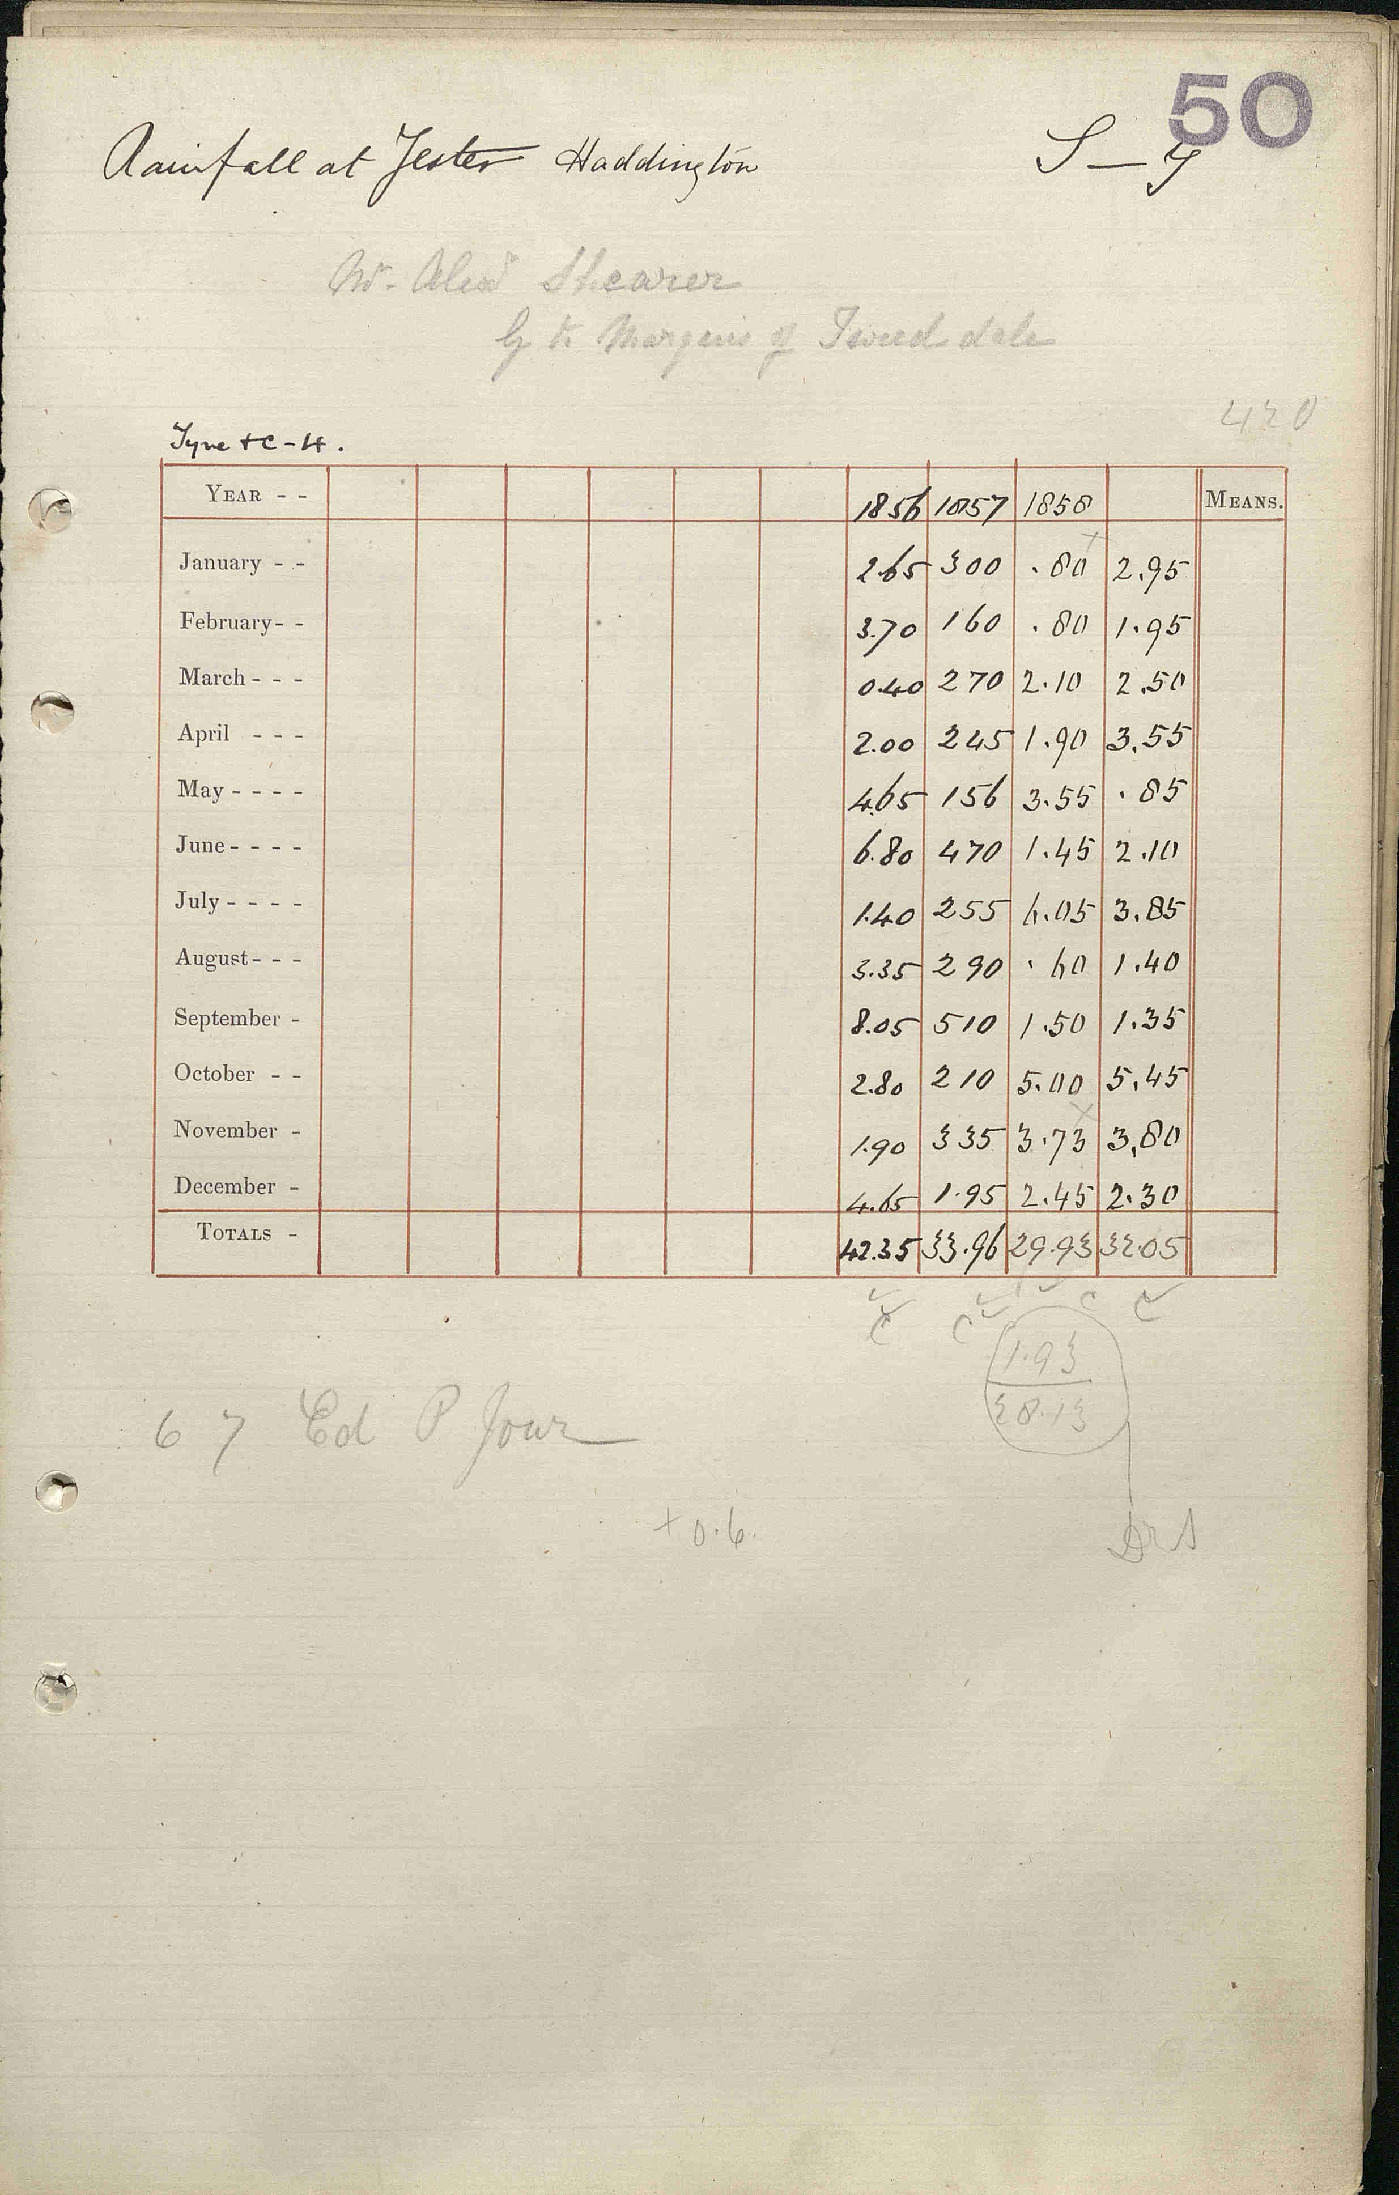 50
Rainfall at Yester Haddington S — Y
Mr. Alexr Shearer
G to Marquis of Tweeddale
420
Tyne + C - H.
YEAR - - 1856 1857 1858 MEANS.
January - - 2.65 300 .80 2.95
February - - 3.70 160 .80 1.95
March - - - 0.40 270 2.10 2.50
April - - - 2.00 245 1.90 3.55
May - - - - 4.65 156 3.55 .85
June - - - - 6.80 470 1.45 2.10
July - - - - 1.40 255 6.05 3.85
August - - - 3.35 290 .60 1.40
September - 8.05 510 1.50 1.35
October - - 2.80 210 5.00 5.45
November - 1.90 335 3.73 3.80
December - 4.65 1.95 2.45 2.30
TOTALS - 42.35 33.96 29.93 32.05
C C C C
1.93
28.13
6 7 Ed P Jour
+ 0.6.